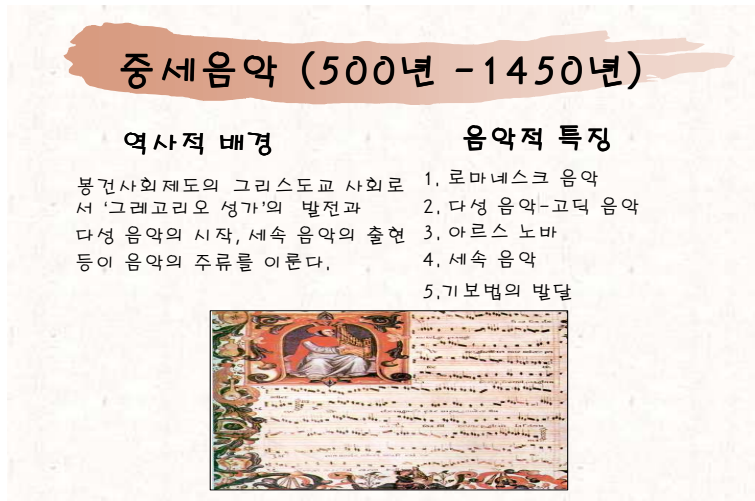 중세음악 (500년 -1450년)
역사적 배경
봉건사회제도의 그리스도교 사회로
서 ‘그레고리오 성가’의 발전과
다성 음악의 시작, 세속 음악의 출현
등이 음악의 주류를 이룬다.
음악적 특징
1. 로마네스크 음악
2. 다성 음악-고딕 음악
3. 아르스 노바
4. 세속 음악
5.기보법의 발달